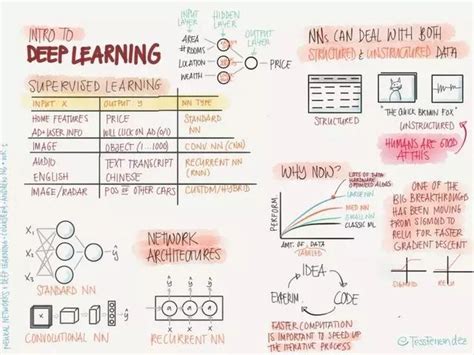 INTRO TO
DEEP LEARNING
INPUT LAYER
HIDDEN LAYER
OUTPUT LAYER
AREA
# ROOMS
LOCATION
WEALTH
PRICE
SUPERVISED LEARNING
INPUT X
OUTPUT Y
NN TYPE
HOME FEATURES
PRICE
STANDARD
AD+USER INFO
WILL CLICK ON AD (0/1)
NN
IMAGE
OBJECT (1...1000)
CONV NN (CNN)
AUDIO
TEXT TRANSCRIPT
RECURRENT
ENGLISH
CHINESE
NN (RNN)
IMAGE/RADAR
POS OF OTHER CARS
CUSTOM/HYBRID
X₁
X₂
X₃
ŷ
STANDARD NN
NETWORK
ARCHITECTURES
CONVOLUTIONAL NN
RECURRENT NN
NNs CAN DEAL WITH BOTH
STRUCTURED & UNSTRUCTURED DATA
STRUCTURED
"THE QUICK BROWN FOX"
UNSTRUCTURED
HUMANS ARE GOOD
AT THIS
WHY NOW?
PERFORM.
LOTS OF DATA
HARDWARE
OPTIMIZED ALGOS.
LARGE NN
MED NN
SMALL NN
CLASSIC ML
AMT. OF DATA
LABELED
IDEA
EXPERIM.
CODE
FASTER COMPUTATION
IS IMPORTANT TO SPEED UP
THE ITERATIVE PROCESS
ONE OF THE
BIG BREAKTHROUGHS
HAS BEEN MOVING
FROM SIGMOID TO
RELU FOR FASTER
GRADIENT DESCENT
SIGMOID
RELU
@TessFerrandez